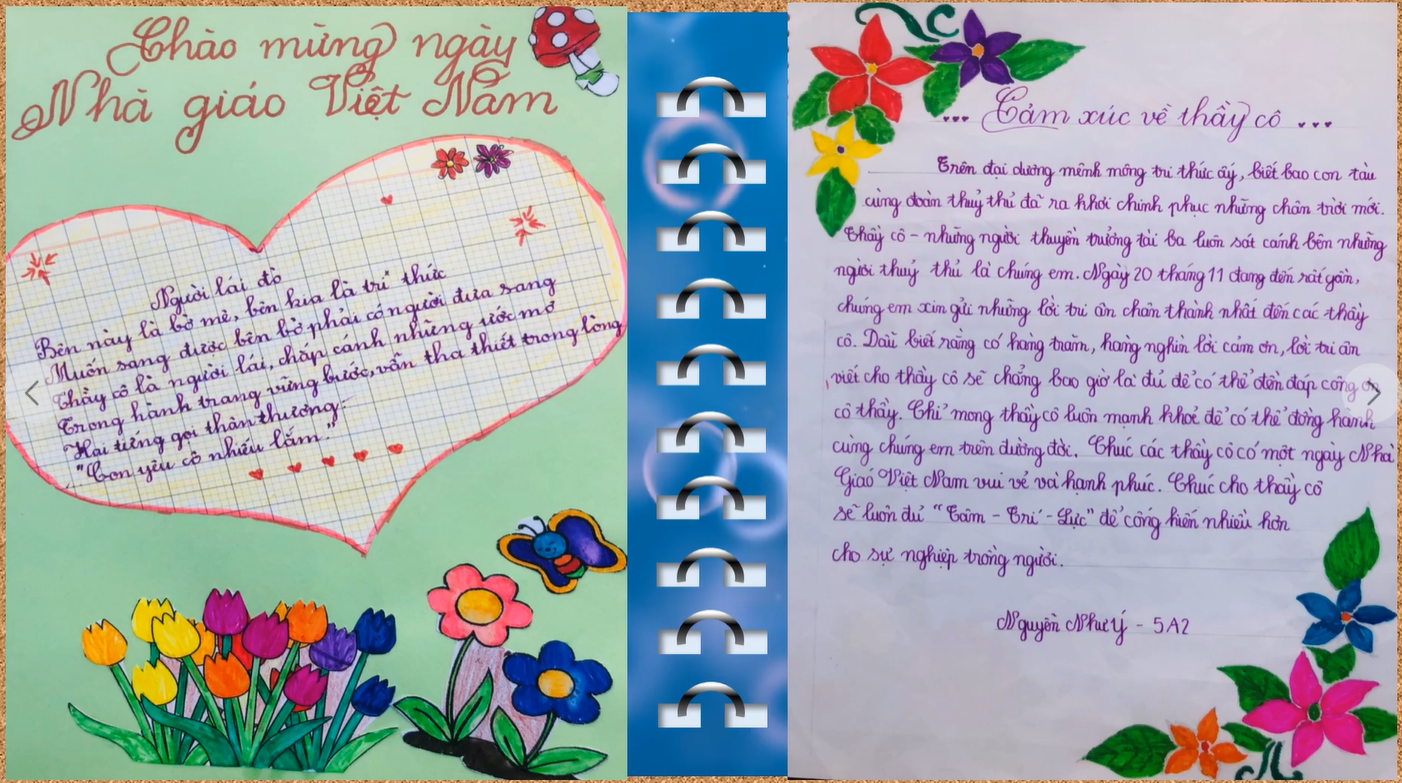 Chào mừng ngày
Nhà giáo Việt Nam
Người lái đò
Bên này là bờ mê, bên kia là tri thức
Muốn sang được bên bờ phải có người đưa sang
Thầy cô là người lái, chắp cánh những ước mơ
Trong hành trang vững bước, vẫn tha thiết trong lòng
Hai tiếng gọi thân thương:
"Con yêu cô nhiều lắm."
... Cảm xúc về thầy cô ...
Trên đại dương mênh mông tri thức ấy, biết bao con tàu
cùng đoàn thuỷ thủ đã ra khơi chinh phục những chân trời mới.
Thầy cô - những người thuyền trưởng tài ba luôn sát cánh bên những
người thuỷ thủ là chúng em. Ngày 20 tháng 11 đang đến rất gần,
chúng em xin gửi những lời tri ân chân thành nhất đến các thầy
cô. Dẫu biết rằng có hàng trăm, hàng nghìn lời cảm ơn, lời tri ân
viết cho thầy cô sẽ chẳng bao giờ là đủ để có thể đền đáp công ơn
cô thầy. Chỉ mong thầy cô luôn mạnh khoẻ để có thể đồng hành
cùng chúng em trên đường đời. Chúc các thầy cô có một ngày Nhà
Giáo Việt Nam vui vẻ và hạnh phúc. Chúc cho thầy cô
sẽ luôn đủ "Tâm - Trí - Lực" để cống hiến nhiều hơn
cho sự nghiệp trồng người.
Nguyễn Như Ý - 5A2